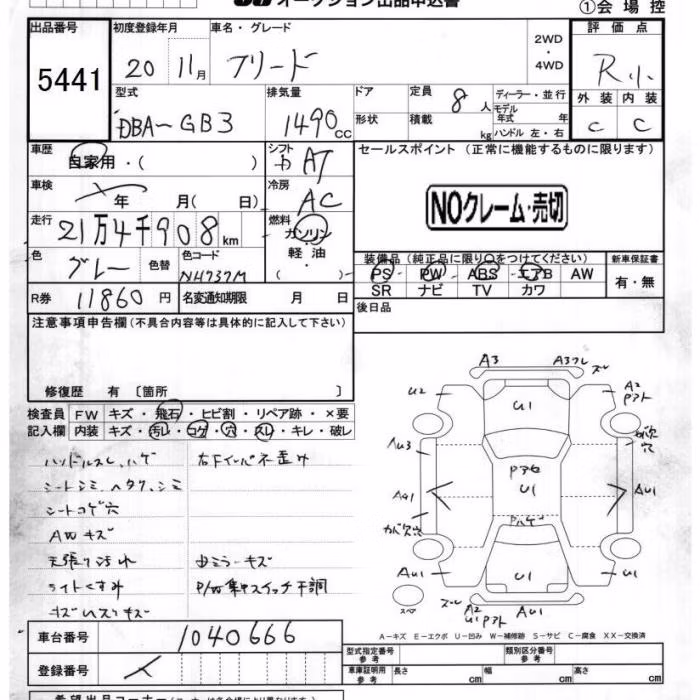 オークション出品申込書
①会場控
出品番号
5441
初度登録年月
20 11月
車名・グレード
フリード
2WD
・
4WD
評価点
R小
外装 内装
C C
型式
DBA-GB3
排気量
1490cc
ドア
形状
定員 8人
積載 kg
ディーラー・並行
モデル
年式 年
ハンドル 左・右
車歴
自家用・( )
シフト
AT
車検
年 月( 日)
冷房
AC
走行
21万4千908km
燃料
ガソリン
・
軽油
・
( )
色
グレー
色替
色コード
NH737M
R券 11860円
名変通知期限 月 日
セールスポイント(正常に機能するものに限ります)
NOクレーム・売切
装備品(純正品に限り○をつけてください)
PS PW ABS エアB AW
SR ナビ TV カワ
新車保証書
有・無
後日品
注意事項申告欄(不具合内容等は具体的に記入して下さい)
修復歴 有〔箇所 〕
検査員 FW キズ・飛石・ヒビ割・リペア跡・×要
記入欄 内装 キズ・汚レ・コゲ・穴・スレ・キレ・破レ
ハンドルスレ、ハゲ
シートシミ、ヘタリ、シミ
シートコゲ穴
AWキズ
天張り汚れ
ライトくすみ
右下インパネ歪み
ミラーキズ
P/W集中スイッチ不調
A3 A3フレ ズレ
U2 U1 A2
Pアト
AU3 穴
PアセU1
AU1 AU1
ガバ穴 Pハゲ
AU1 U1 U1
スペア
ズレ A2 AU1
U1 Pアト
A-キズ E-エクボ U-凹み W-補修跡 S-サビ C-腐食 XX-交換済
車台番号 1040666
登録番号
型式指定番号
参考
類別区分番号
参考
車庫証明用
参考
長さ cm 幅 cm 高さ cm